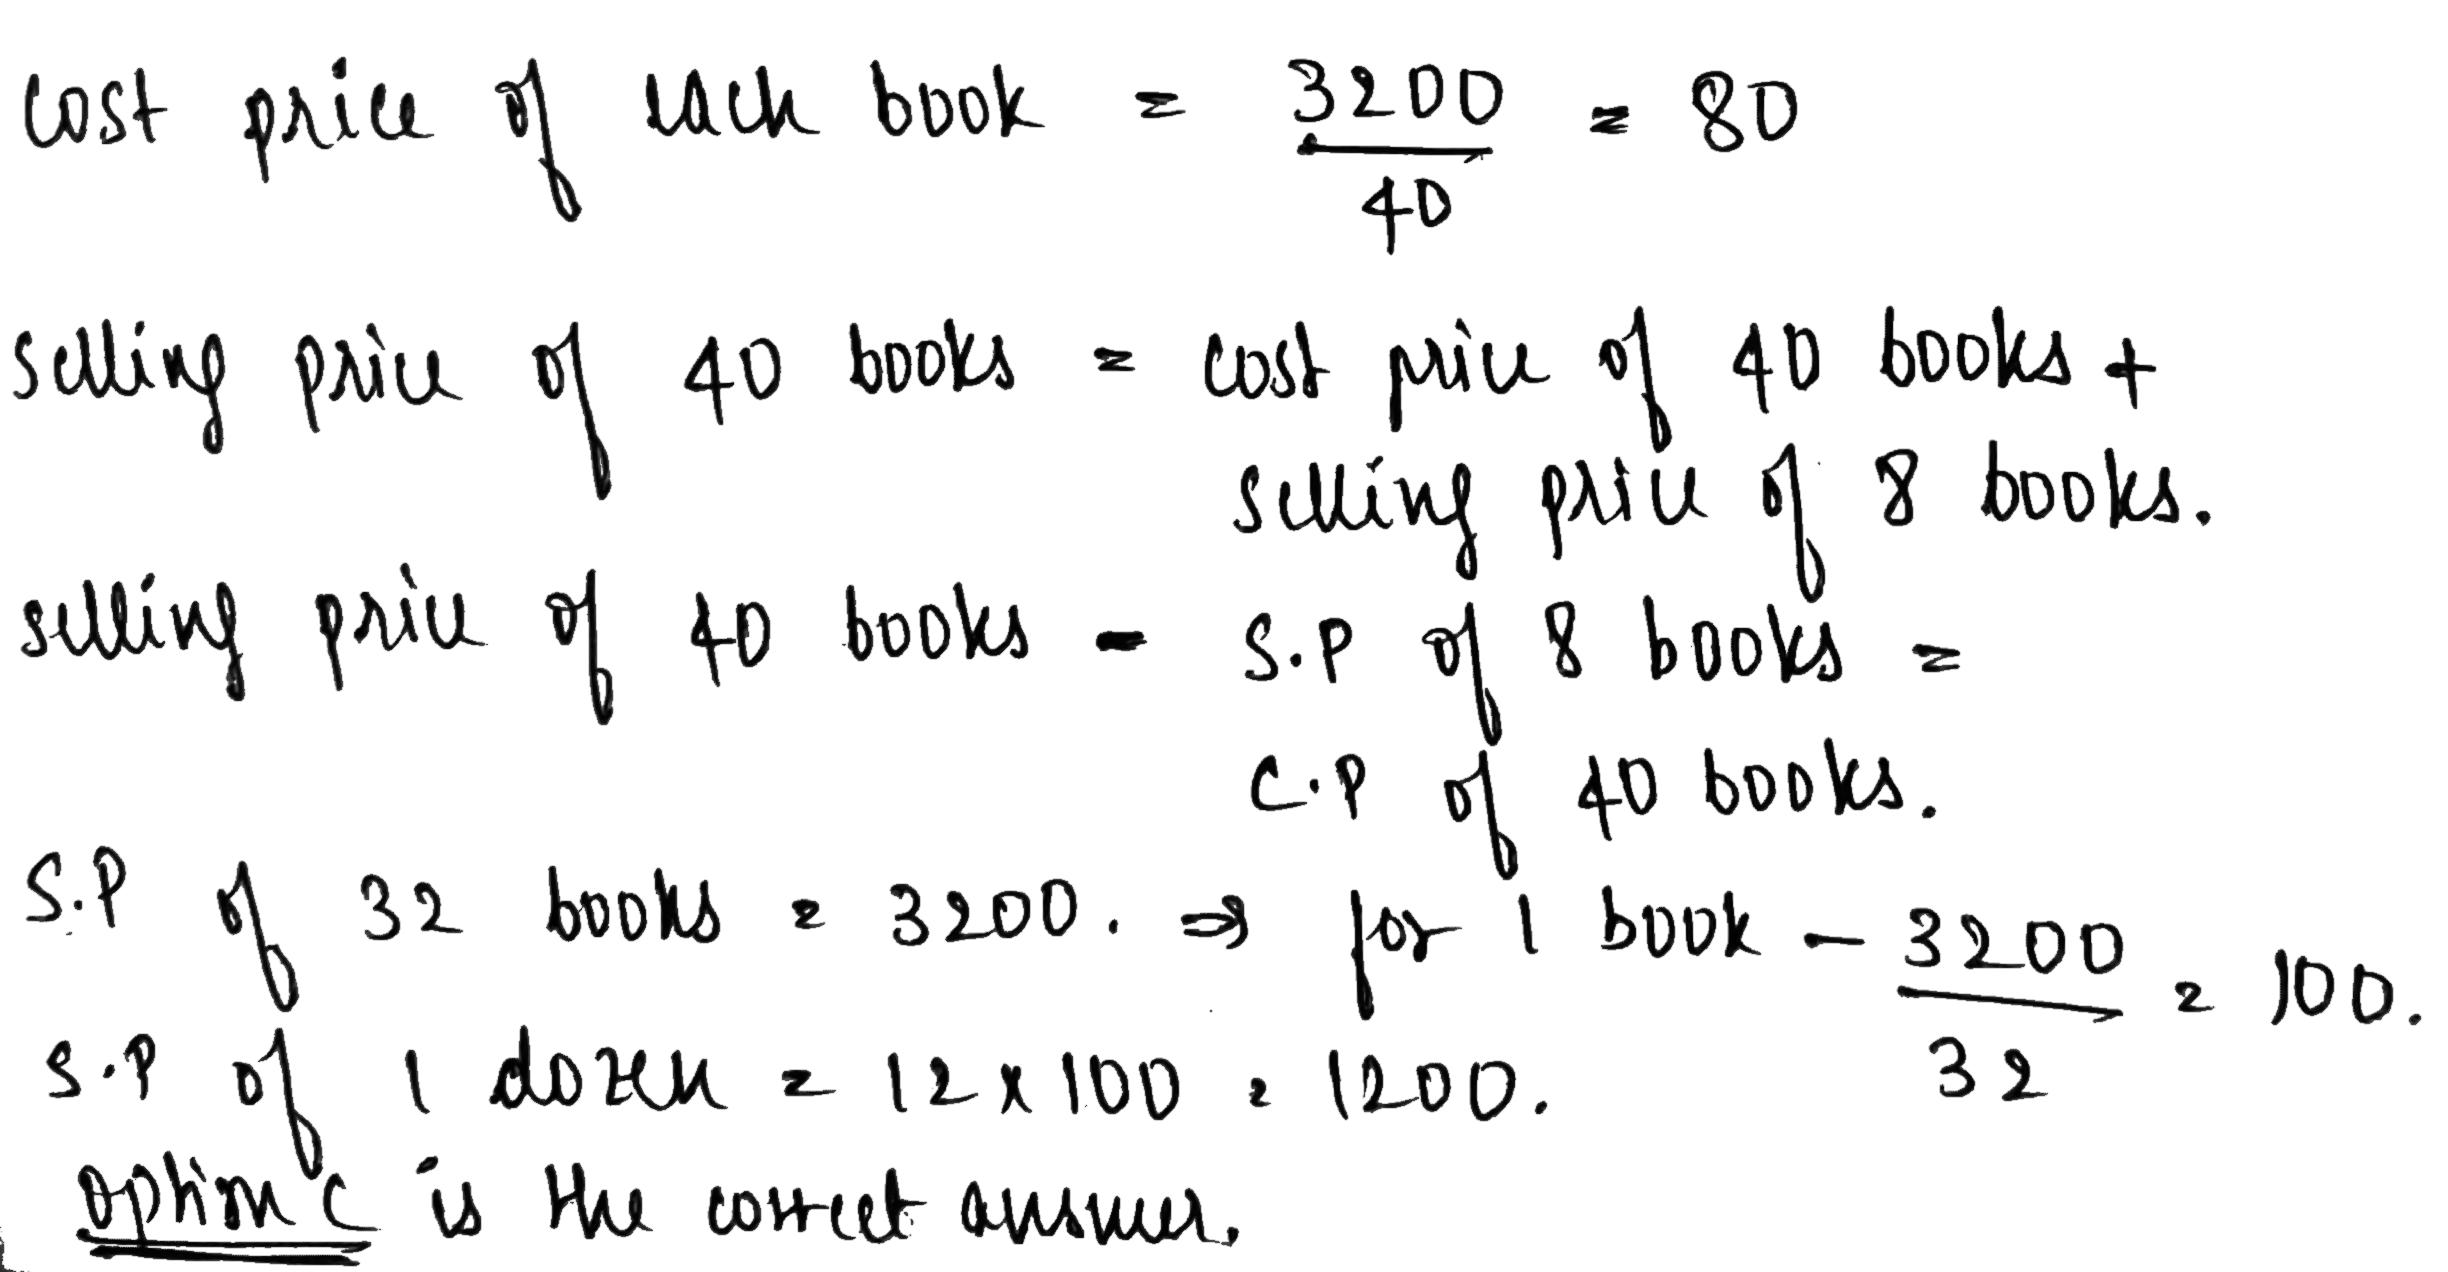 Cost price of each book = 3200/40 = 80
Selling price of 40 books = cost price of 40 books +
selling price of 8 books.
selling price of 40 books - S.P of 8 books =
C.P of 40 books.
S.P of 32 books = 3200. ⇒ for 1 book - 3200/32 = 100.
S.P of 1 dozen = 12 x 100 = 1200.
option C is the correct answer.